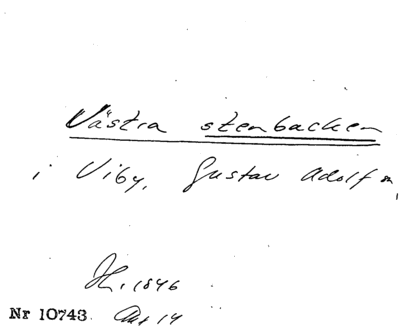 Västra stenbacken
i Viby, Gustav Adolf
1846
Nr 10743. Akt 14